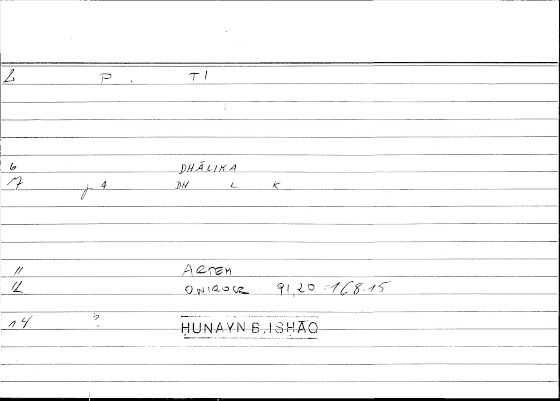 L P. TI
6 DHĀLIKA
7 jA DH L K
11 ARTEM
12 ONIROCR 91,20 = 168.15
14 ? ḤUNAYN B. ISḤĀQ